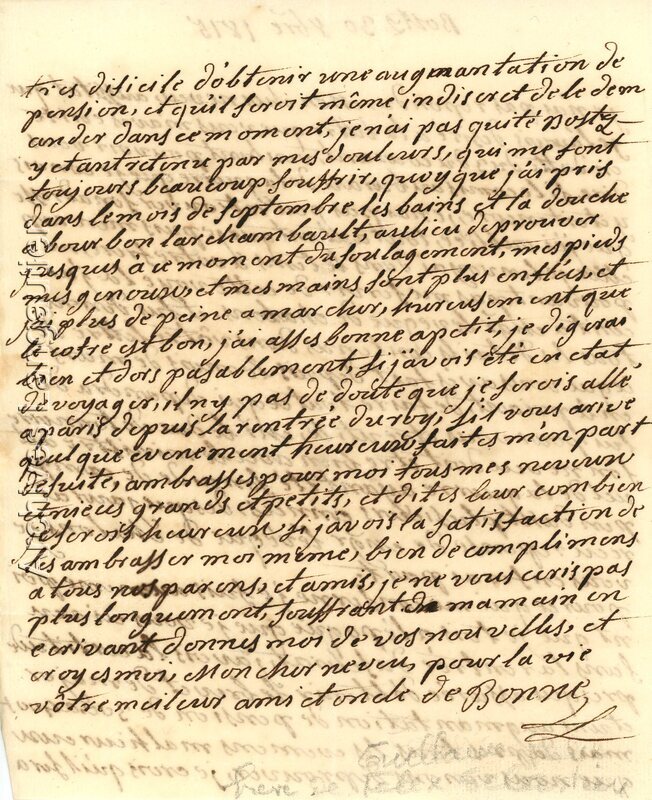 tres disicile d'obtenir une augmantation de
pension, et qu'il seroit même indiscret de le dem
ander dans ce moment, je n'ai pas quité
y etant retenu par mes douleurs, qui me font
toujours beaucoup souffrir, quoy que j'ai pris
dans le mois de septembre les bains et la douche
a bourbon larchambault, au lieu de prouver
jusqus à ce moment du soulagement, mes pieds
mes genoux, et mes mains sont plus enflés, et
j'ai plus de peine a marcher, hureusement que
le cofre est bon, j'ai asses bonne apetit, je dig
bien et dors pasablement, si j'avois été en etat
de voyager, il ny pas de doute que je serois allé
a paris depuis la rentrée du roy, s'il vous arive
quelque evenement heureux faites m'en part
de suite, ambrasses pour moi tous mes neveux
et nieces grands et petits, et dites leur combien
je serois heureux si j'avois la satisfaction de
les ambrasser moi meme, bien de complimens
a tous nos parens, et amis, je ne vous ecris pas
plus longuement, souffrant de ma main en
ecrivant donnes moi de vos nouvelles, et
croyes moi, Mon cher neveu, pour la vie
vôtre meileur ami et oncle de Bonne
Guillaume
frere de